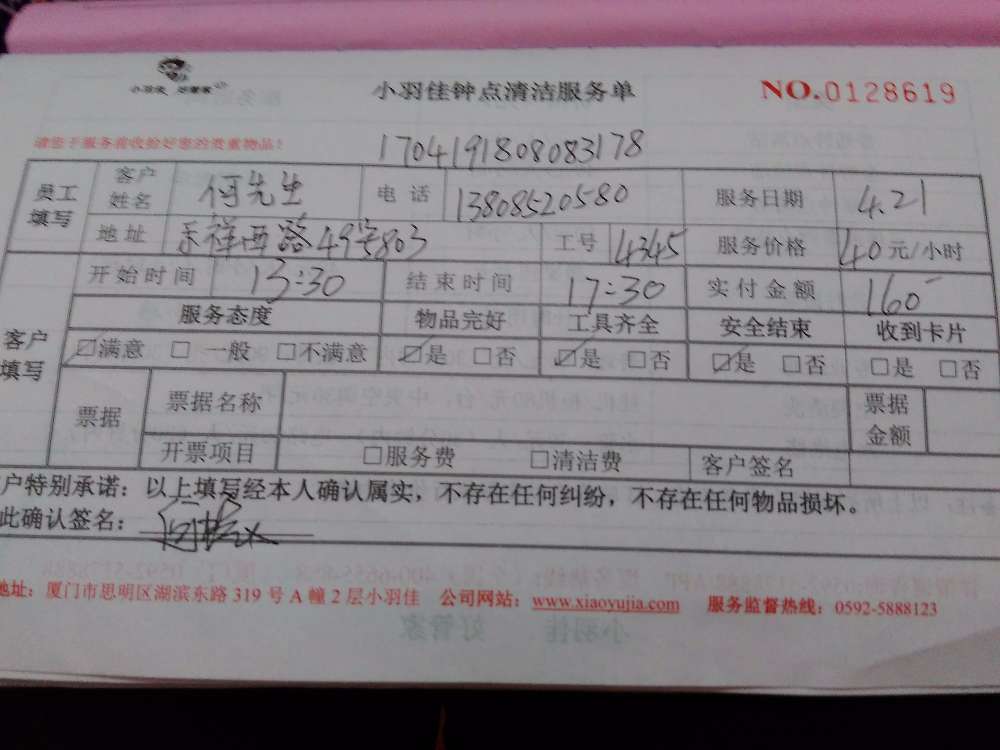 小羽佳 好管家
小羽佳钟点清洁服务单
NO.0128619
请您于服务前收验好您的贵重物品!
1704191808083178
员工填写 客户姓名 何先生 电话 13808520580 服务日期 4.21
地址 祥西路49号803 工号 4345 服务价格 40元/小时
客户填写 开始时间 13:30 结束时间 17:30 实付金额 160
服务态度 物品完好 工具齐全 安全结束 收到卡片
☑满意 □一般 □不满意 ☑是 □否 ☑是 □否 ☑是 □否 □是 □否
票据 票据名称 票据金额
开票项目 □服务费 □清洁费 客户签名
户特别承诺：以上填写经本人确认属实，不存在任何纠纷，不存在任何物品损坏。
此确认签名：
地址：厦门市思明区湖滨东路 319 号 A 幢 2 层小羽佳 公司网站：www.xiaoyujia.com 服务监督热线：0592-5888123